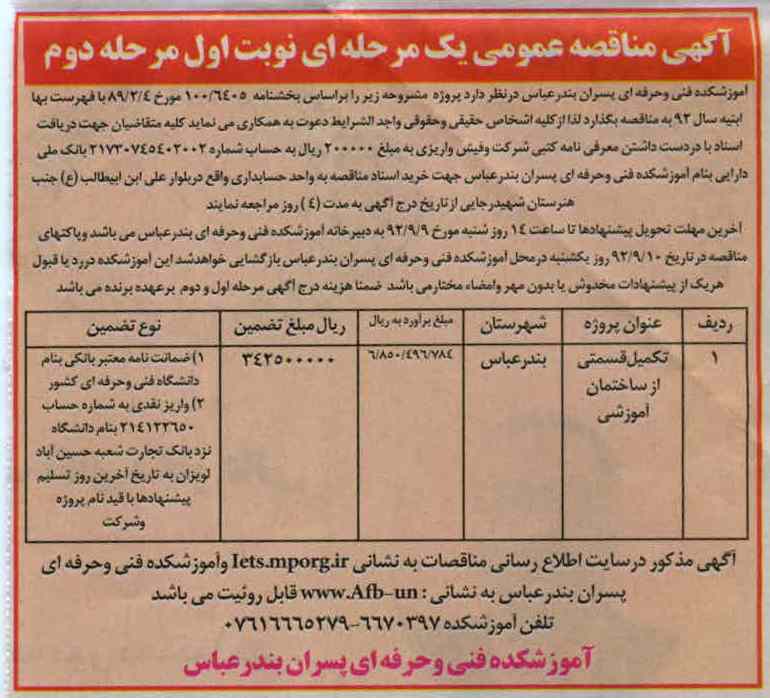 آگهی مناقصه عمومی یک مرحله ای نوبت اول مرحله دوم
آموزشکده فنی وحرفه ای پسران بندرعباس درنظر دارد پروژه مشروحه زیر را براساس بخشنامه ۱۰۰/۶۴۰۵ مورخ ۸۹/۲/۴ با فهرست بها
ابنیه سال ۹۲ به مناقصه بگذارد لذا ازکلیه اشخاص حقیقی وحقوقی واجد الشرایط دعوت به همکاری می نماید کلیه متقاضیان جهت دریافت
اسناد با دردست داشتن معرفی نامه کتبی شرکت وفیش واریزی به مبلغ ۲۰۰۰۰۰ ریال به حساب شماره ۲۱۷۳۰۷۴۵۴۰۲۰۰۲ بانک ملی
دارایی بنام آموزشکده فنی وحرفه ای پسران بندرعباس جهت خرید اسناد مناقصه به واحد حسابداری واقع دربلوار علی ابن ابیطالب (ع) جنب
هنرستان شهیدرجایی ازتاریخ درج آگهی به مدت (۴) روز مراجعه نمایند
آخرین مهلت تحویل پیشنهادها تا ساعت ۱۴ روز شنبه مورخ ۹۲/۹/۹ به دبیرخانه آموزشکده فنی وحرفه ای بندرعباس می باشد وپاکتهای
مناقصه درتاریخ ۹۲/۹/۱۰ روز یکشنبه درمحل آموزشکده فنی وحرفه ای پسران بندرعباس بازگشایی خواهدشد این آموزشکده دررد یا قبول
هریک از پیشنهادات مخدوش یا بدون مهر وامضاء مختارمی باشد ضمنا هزینه درج آگهی مرحله اول و دوم برعهده برنده می باشد
ردیف عنوان پروژه شهرستان مبلغ برآورد به ریال ریال مبلغ تضمین نوع تضمین
۱ تکمیل قسمتی بندرعباس ۶/۸۵۰/۴۹۶/۷۸۴ ۳۴۲۵۰۰۰۰۰ ۱) ضمانت نامه معتبر بانکی بنام
از ساختمان دانشگاه فنی وحرفه ای کشور
آموزشی ۲) واریز نقدی به شماره حساب
۲۱۴۱۲۲۶۵۰ بنام دانشگاه
نزد بانک تجارت شعبه حسین آباد
لویزان به تاریخ آخرین روز تسلیم
پیشنهادها با قید نام پروژه
وشرکت
آگهی مذکور درسایت اطلاع رسانی مناقصات به نشانی Iets.mporg.ir وآموزشکده فنی وحرفه ای
پسران بندرعباس به نشانی : www.Afb-un قابل روئیت می باشد
تلفن آموزشکده ۶۶۷۰۳۹۷-۰۷۶۱۶۶۶۵۲۷۹
آموزشکده فنی وحرفه ای پسران بندرعباس